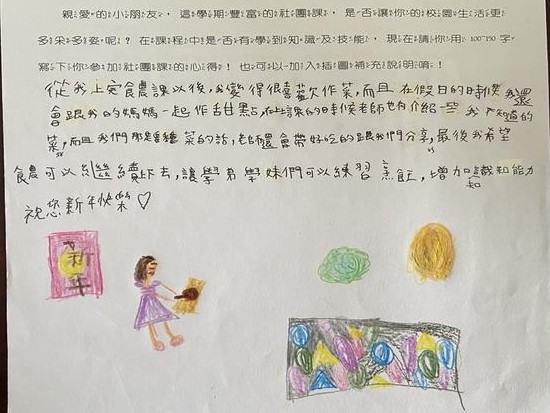 親愛的小朋友，這學期豐富的社團課，是否讓你的校園生活更
多采多姿呢？在課程中是否有學到知識及技能，現在請你用100~150字，
寫下你參加社團課的心得！也可以加入插圖補充說明唷！
從我上完食農課以後，我變得很喜歡作菜，而且在假日的時候我還
會跟我的媽媽一起作甜點，在上課的時候老師也有介紹一些我不知道的
菜，而且我們那是種菜的話，老師還會帶好吃的跟我們分享，最後我希望
食農可以繼續下去，讓學弟學妹們可以練習烹飪，增加認知能力
祝您新年快樂♡
新年